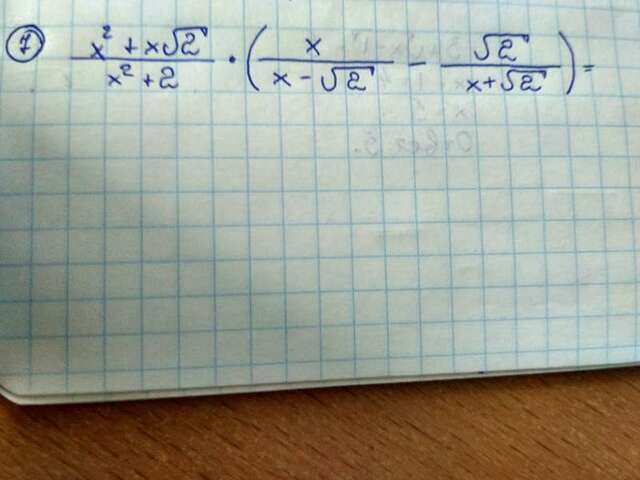 7 (x² + x√2)/(x² + 2) · (x/(x - √2) - √2/(x + √2)) =